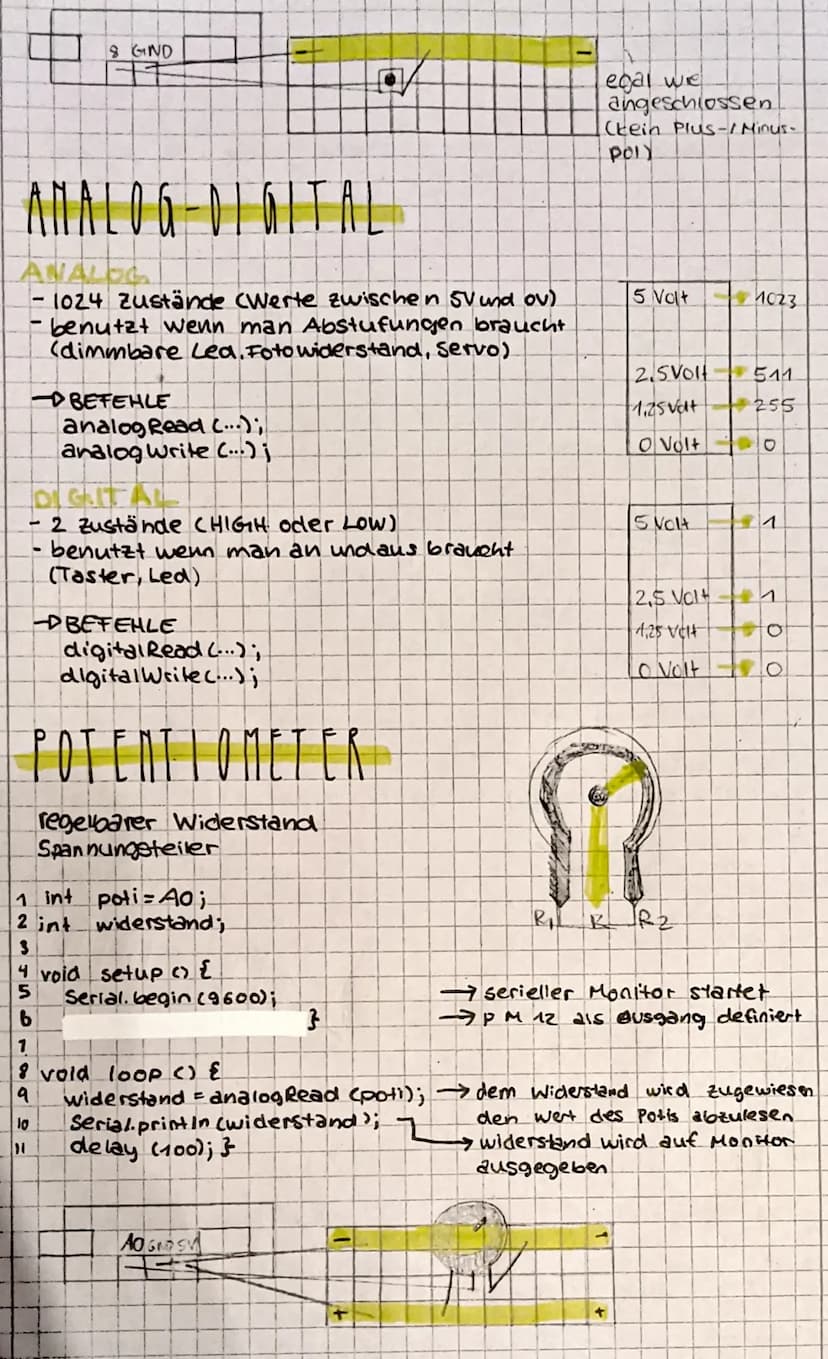 8 GND
− −
egal wie
angeschlossen
(kein Plus-/Minus-
pol)
ANALOG-DIGITAL
ANALOG
- 1024 Zustände (Werte zwischen 5V und 0V)
- benutzt wenn man Abstufungen braucht
(dimmbare Led, Fotowiderstand, Servo)
→ BEFEHLE
analogRead (...);
analogWrite (...);
5 Volt → 1023
2,5 Volt → 511
1,25 Volt → 255
0 Volt → 0
DIGITAL
- 2 Zustände (HIGH oder LOW)
- benutzt wenn man an und aus braucht
(Taster, Led)
→ BEFEHLE
digitalRead (...);
digitalWrite (...);
5 Volt → 1
2,5 Volt → 1
1,25 Volt → 0
0 Volt → 0
POTENTIOMETER
regelbarer Widerstand
Spannungsteiler
R1 K R2
1 int poti = A0;
2 int widerstand;
3
4 void setup () {
5 Serial.begin (9600); → serieller Monitor startet
6 } → PIN 12 als Ausgang definiert
7
8 void loop () {
9 widerstand = analogRead (poti); → dem Widerstand wird zugewiesen
den Wert des Potis abzulesen
10 Serial.println (widerstand); → widerstand wird auf Monitor
ausgegeben
11 delay (100); }
A0 GND 5V
− −
+ +